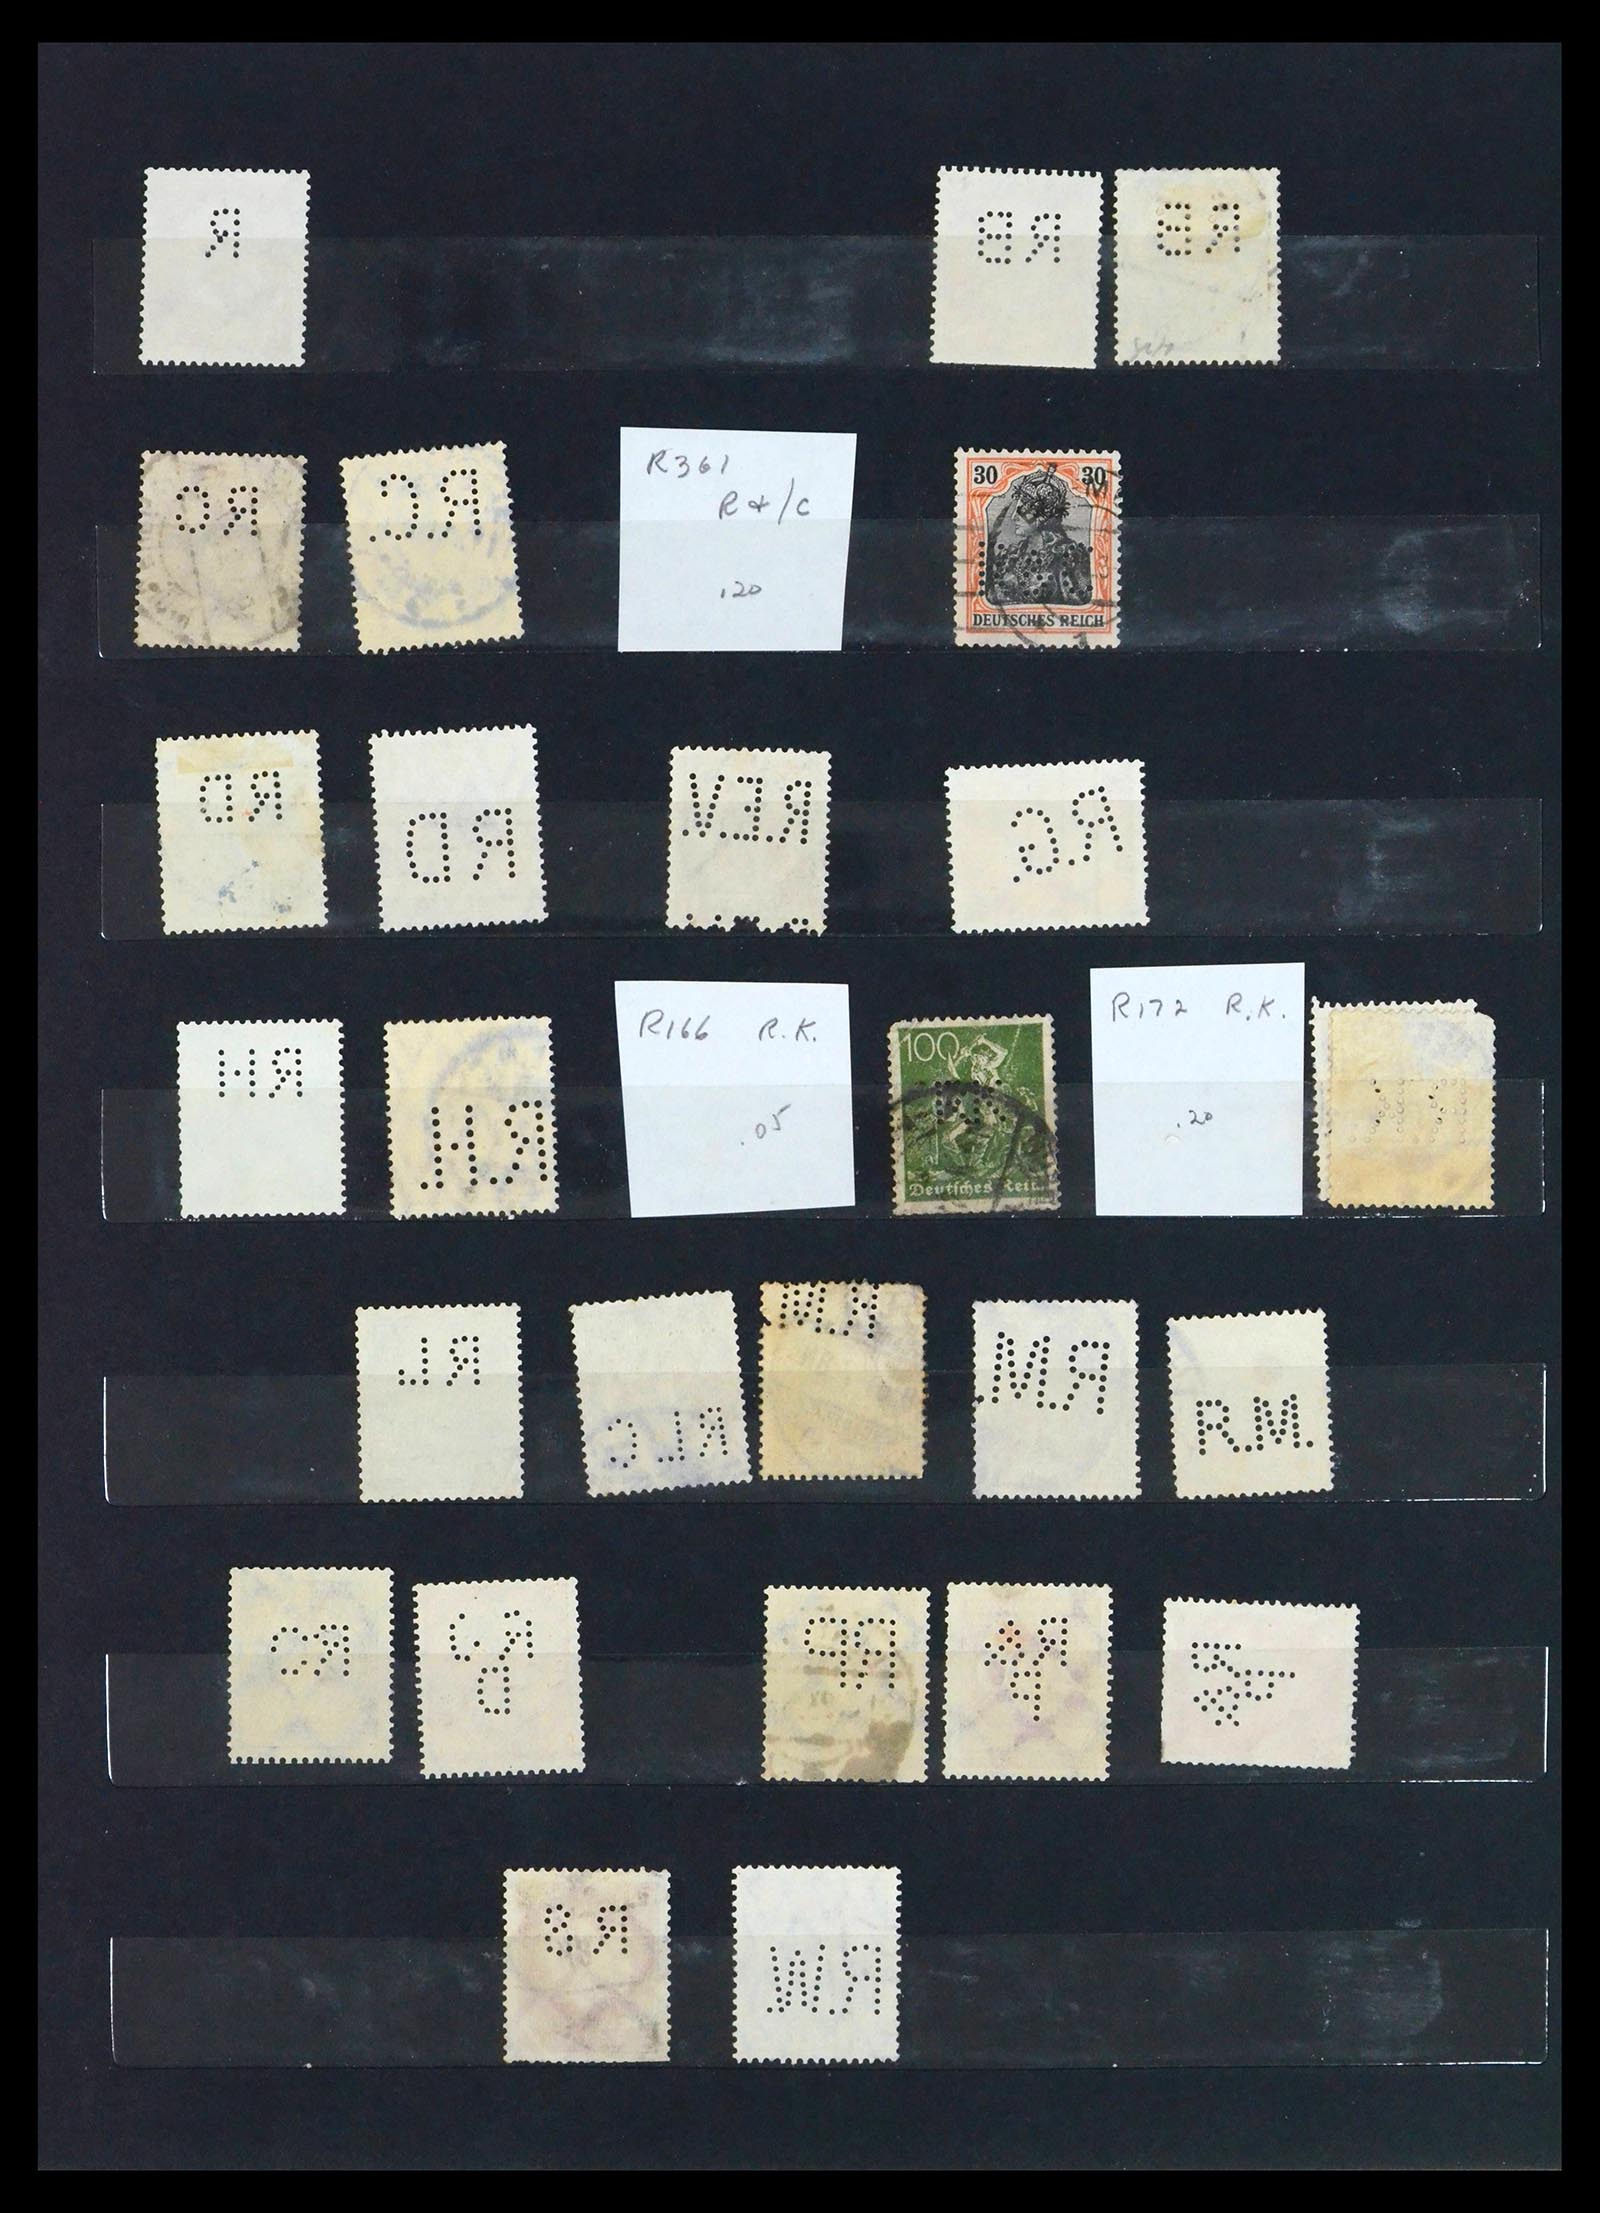 R
RB
RB
RC
R.C.
R361
R + / C
.20
30 30
DEUTSCHES REICH
RD
RD
R.E.V.
R.G.
RH
R.H.
R166 R.K.
.05
100
Deutsches Reich
R172 R.K.
.20
R.L.
RLC
R.M.
R.M.
R.M.
R.C.
R.J.
D
RP
R&
P
R8
R.W.